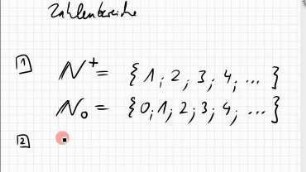 Zahlenbereiche
1 N⁺ = { 1 ; 2 ; 3 ; 4 ; ... }
N₀ = { 0 ; 1 ; 2 ; 3 ; 4 ; ... }
2